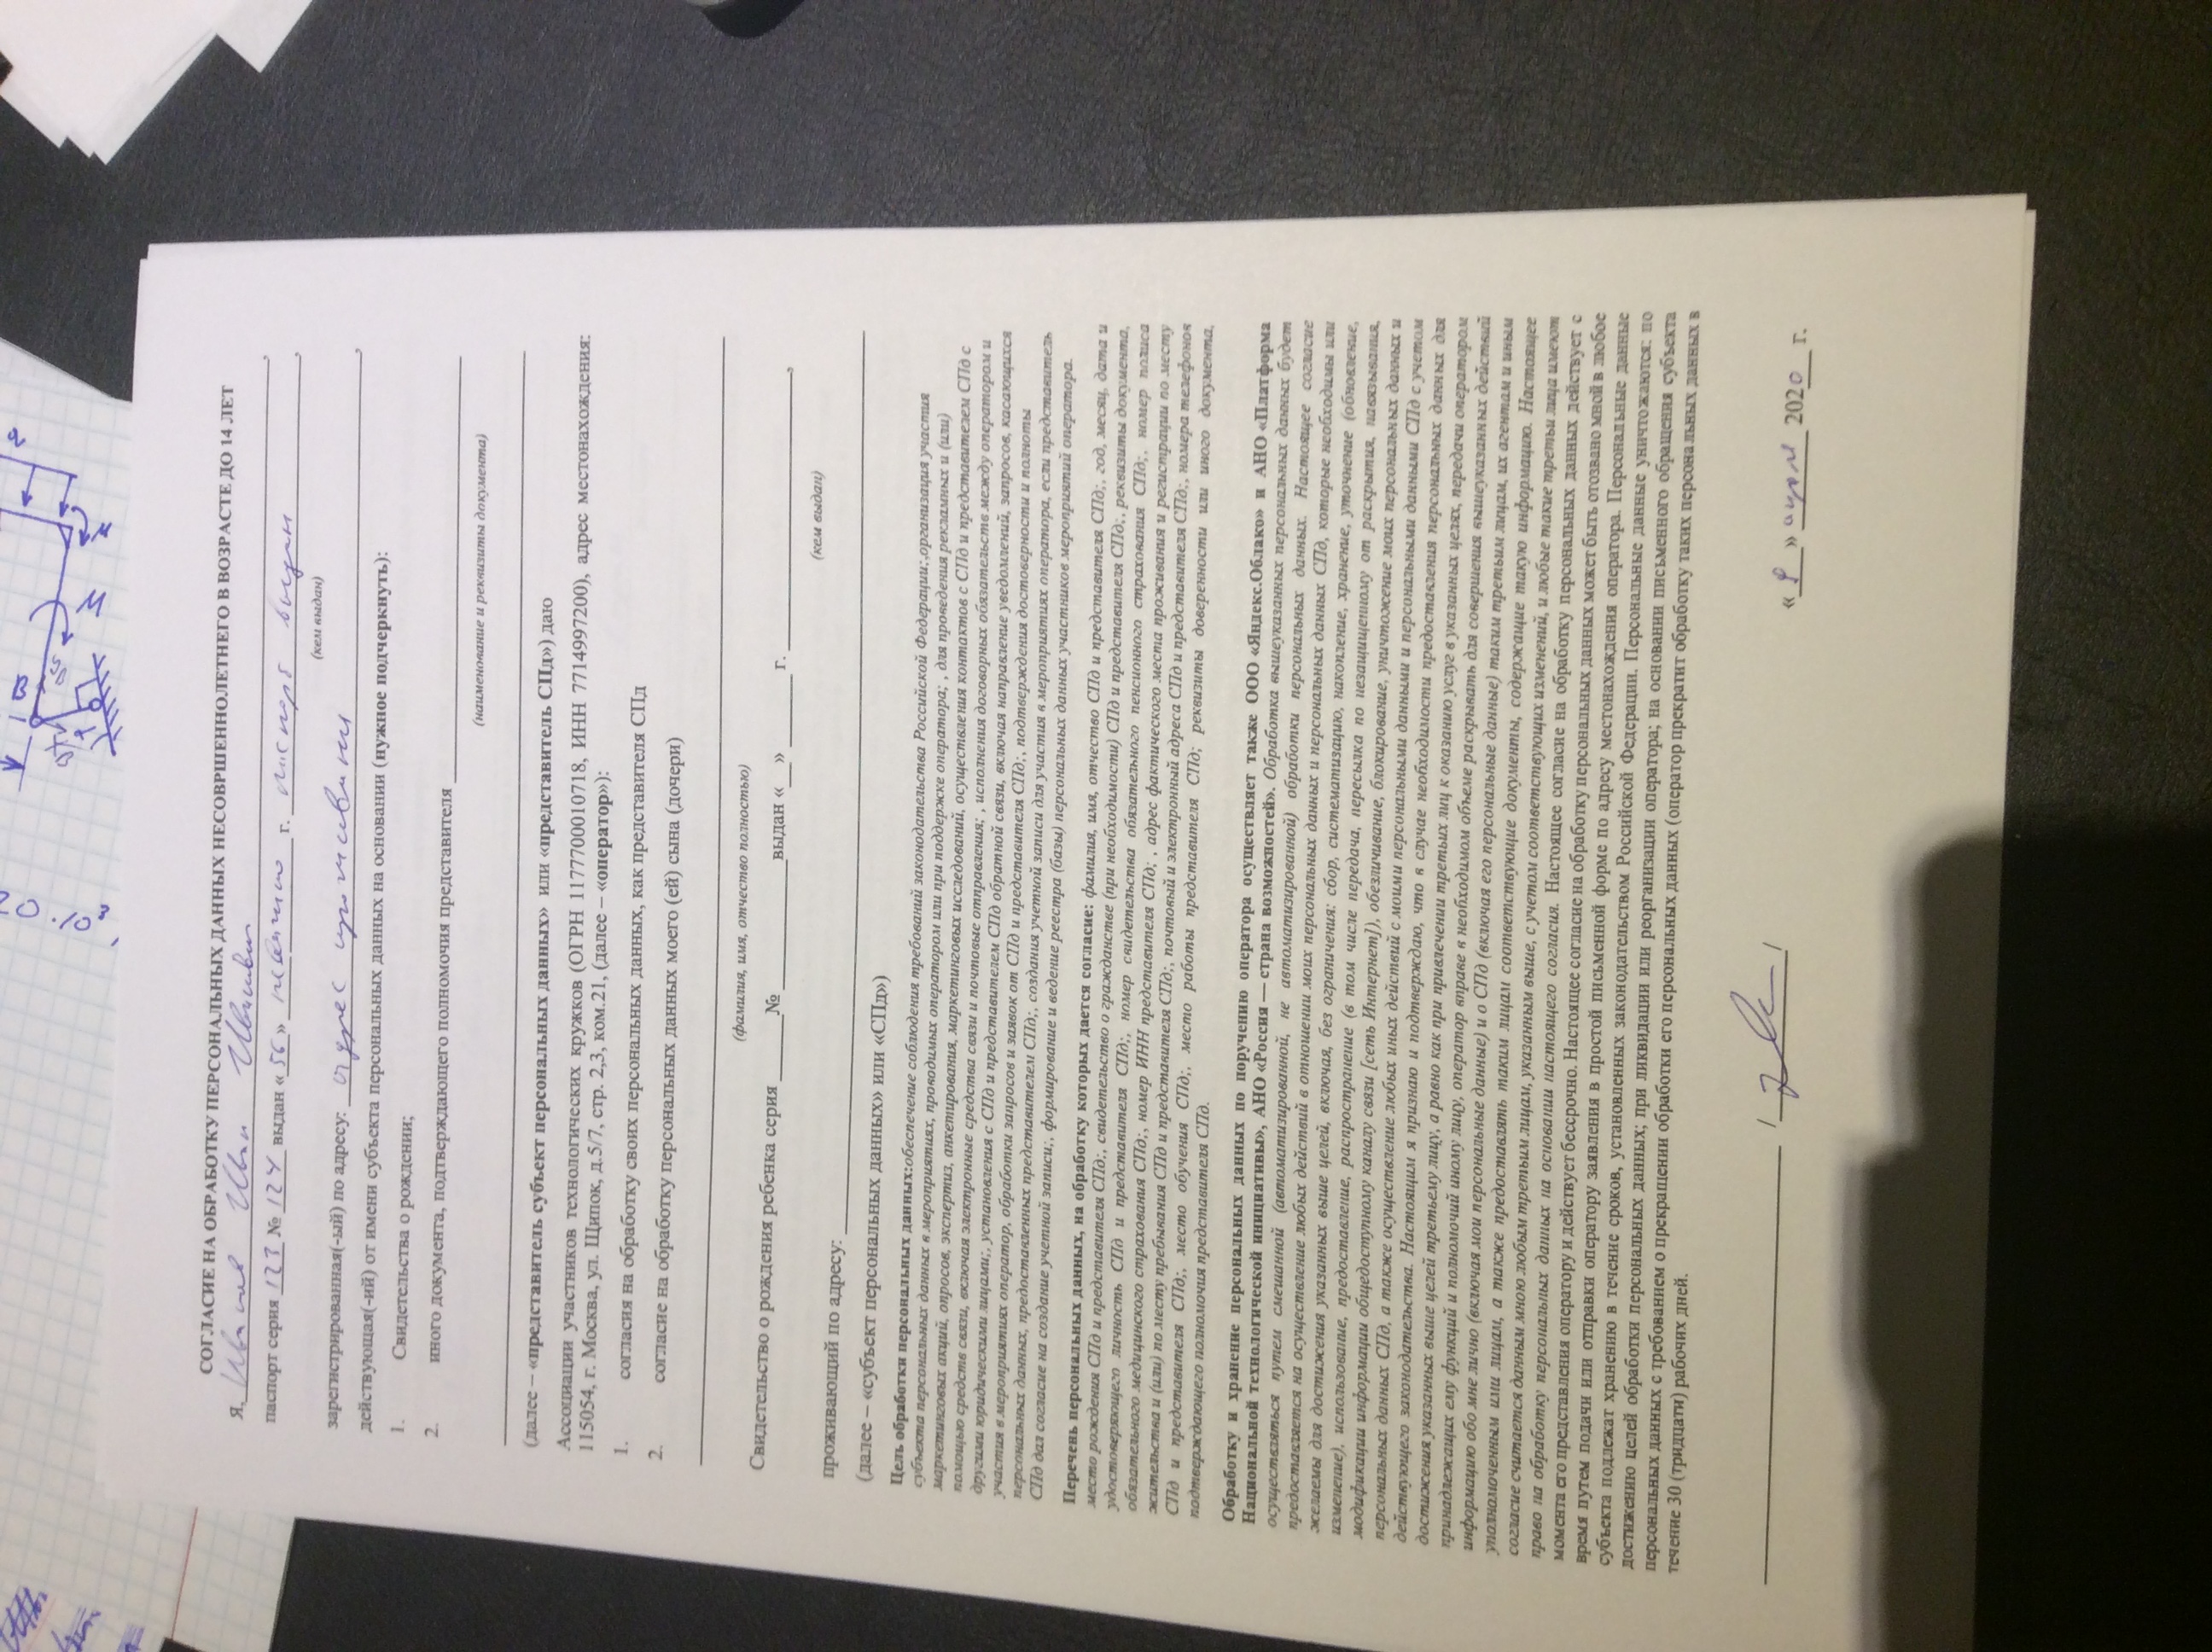 20.10³,
В
М
СОГЛАСИЕ НА ОБРАБОТКУ ПЕРСОНАЛЬНЫХ ДАННЫХ НЕСОВРШЕННОЛЕТНЕГО В ВОЗРАСТЕ ДО 14 ЛЕТ
Я, Иванов Иван Иванович,
паспорт серия 123 № 124 выдан «56» невачно г. паспорт выдан,
(кем выдан)
зарегистрированная(-ый) по адресу: адрес проживания,
действующая(-ий) от имени субъекта персональных данных на основании (нужное подчеркнуть):
1. Свидетельства о рождении;
2. иного документа, подтверждающего полномочия представителя
(наименование и реквизиты документа)
(далее – «представитель субъект персональных данных» или «представитель СПд») даю
Ассоциации участников технологических кружков (ОГРН 1177700010718, ИНН 7714997200), адрес местонахождения:
115054, г. Москва, ул. Щипок, д.5/7, стр. 2,3, ком.21, (далее – «оператор»):
1. согласия на обработку своих персональных данных, как представителя СПд
2. согласие на обработку персональных данных моего (ей) сына (дочери)
(фамилия, имя, отчество полностью)
Свидетельство о рождения ребенка серия ______№ ____________выдан «__» ______ г. ____________,
(кем выдан)
проживающий по адресу:
(далее – «субъект персональных данных» или «СПд»)
Цель обработки персональных данных:обеспечение соблюдения требований законодательства Российской Федерации;,организация участия
субъекта персональных данных в мероприятиях, проводимых оператором или при поддержке оператора; , для проведения рекламных и (или)
маркетинговых акций, опросов, экспертиз, анкетирования, маркетинговых исследований, осуществления контактов с СПд и представителем СПд с
помощью средств связи, включая электронные средства связи и почтовые отправления; , исполнения договорных обязательств между оператором и
другими юридическими лицами;, установления с СПд и представителем СПд обратной связи, включая направление уведомлений, запросов, касающихся
участия в мероприятиях оператор, обработки запросов и заявок от СПд и представителя СПд;, подтверждения достоверности и полноты
персональных данных, предоставленных представителем СПд;, создания учетной записи для участия в мероприятиях оператора, если представитель
СПд дал согласие на создание учетной записи;, формирование и ведение реестра (базы) персональных данных участников мероприятий оператора.
Перечень персональных данных, на обработку которых дается согласие: фамилия, имя, отчество СПд и представителя СПд;, год, месяц, дата и
место рождения СПд и представителя СПд;, свидетельство о гражданстве (при необходимости) СПд и представителя СПд;, реквизиты документа,
удостоверяющего личность СПд и представителя СПд;, номер свидетельства обязательного пенсионного страхования СПд;, номер полиса
обязательного медицинского страхования СПд;, номер ИНН представителя СПд; , адрес фактического места проживания и регистрации по месту
жительства и (или) по месту пребывания СПд и представителя СПд;, почтовый и электронный адреса СПд и представителя СПд;, номера телефонов
СПд и представителя СПд;, место обучения СПд;, место работы представителя СПд; реквизиты доверенности или иного документа,
подтверждающего полномочия представителя СПд.
Обработку и хранение персональных данных по поручению оператора осуществляет также ООО «Яндекс.Облако» и АНО «Платформа
Национальной технологической инициативы», АНО «Россия — страна возможностей». Обработка вышеуказанных персональных данных будет
осуществляться путем смешанной (автоматизированной, не автоматизированной) обработки персональных данных. Настоящее согласие
предоставляется на осуществление любых действий в отношении моих персональных данных и персональных данных СПд, которые необходимы или
желаемы для достижения указанных выше целей, включая, без ограничения: сбор, систематизацию, накопление, хранение, уточнение (обновление,
изменение), использование, предоставление, распространение (в том числе передача, пересылка по незащищенному от раскрытия, навязывания,
модификации информации общедоступному каналу связи [сеть Интернет]), обезличивание, блокирование, уничтожение моих персональных данных и
персональных данных СПд, а также осуществление любых иных действий с моими персональными данными и персональными данными СПд с учетом
действующего законодательства. Настоящим я признаю и подтверждаю, что в случае необходимости предоставления персональных данных для
достижения указанных выше целей третьему лицу, а равно как при привлечении третьих лиц к оказанию услуг в указанных целях, передачи оператором
принадлежащих ему функций и полномочий иному лицу, оператор вправе в необходимом объеме раскрывать для совершения вышеуказанных действий
информацию обо мне лично (включая мои персональные данные) и о СПд (включая его персональные данные) таким третьим лицам, их агентам и иным
уполномоченным ими лицам, а также предоставлять таким лицам соответствующие документы, содержащие такую информацию. Настоящее
согласие считается данным мною любым третьим лицам, указанным выше, с учетом соответствующих изменений, и любые такие третьи лица имеют
право на обработку персональных данных на основании настоящего согласия. Настоящее согласие на обработку персональных данных действует с
момента его представления оператору и действует бессрочно. Настоящее согласие на обработку персональных данных может быть отозвано мной в любое
время путем подачи или отправки оператору заявления в простой письменной форме по адресу местонахождения оператора. Персональные данные
субъекта подлежат хранению в течение сроков, установленных законодательством Российской Федерации. Персональные данные уничтожаются: по
достижению целей обработки персональных данных; при ликвидации или реорганизации оператора; на основании письменного обращения субъекта
персональных данных с требованием о прекращении обработки его персональных данных (оператор прекратит обработку таких персональных данных в
течение 30 (тридцати) рабочих дней.
«9» апреля 2020 г.